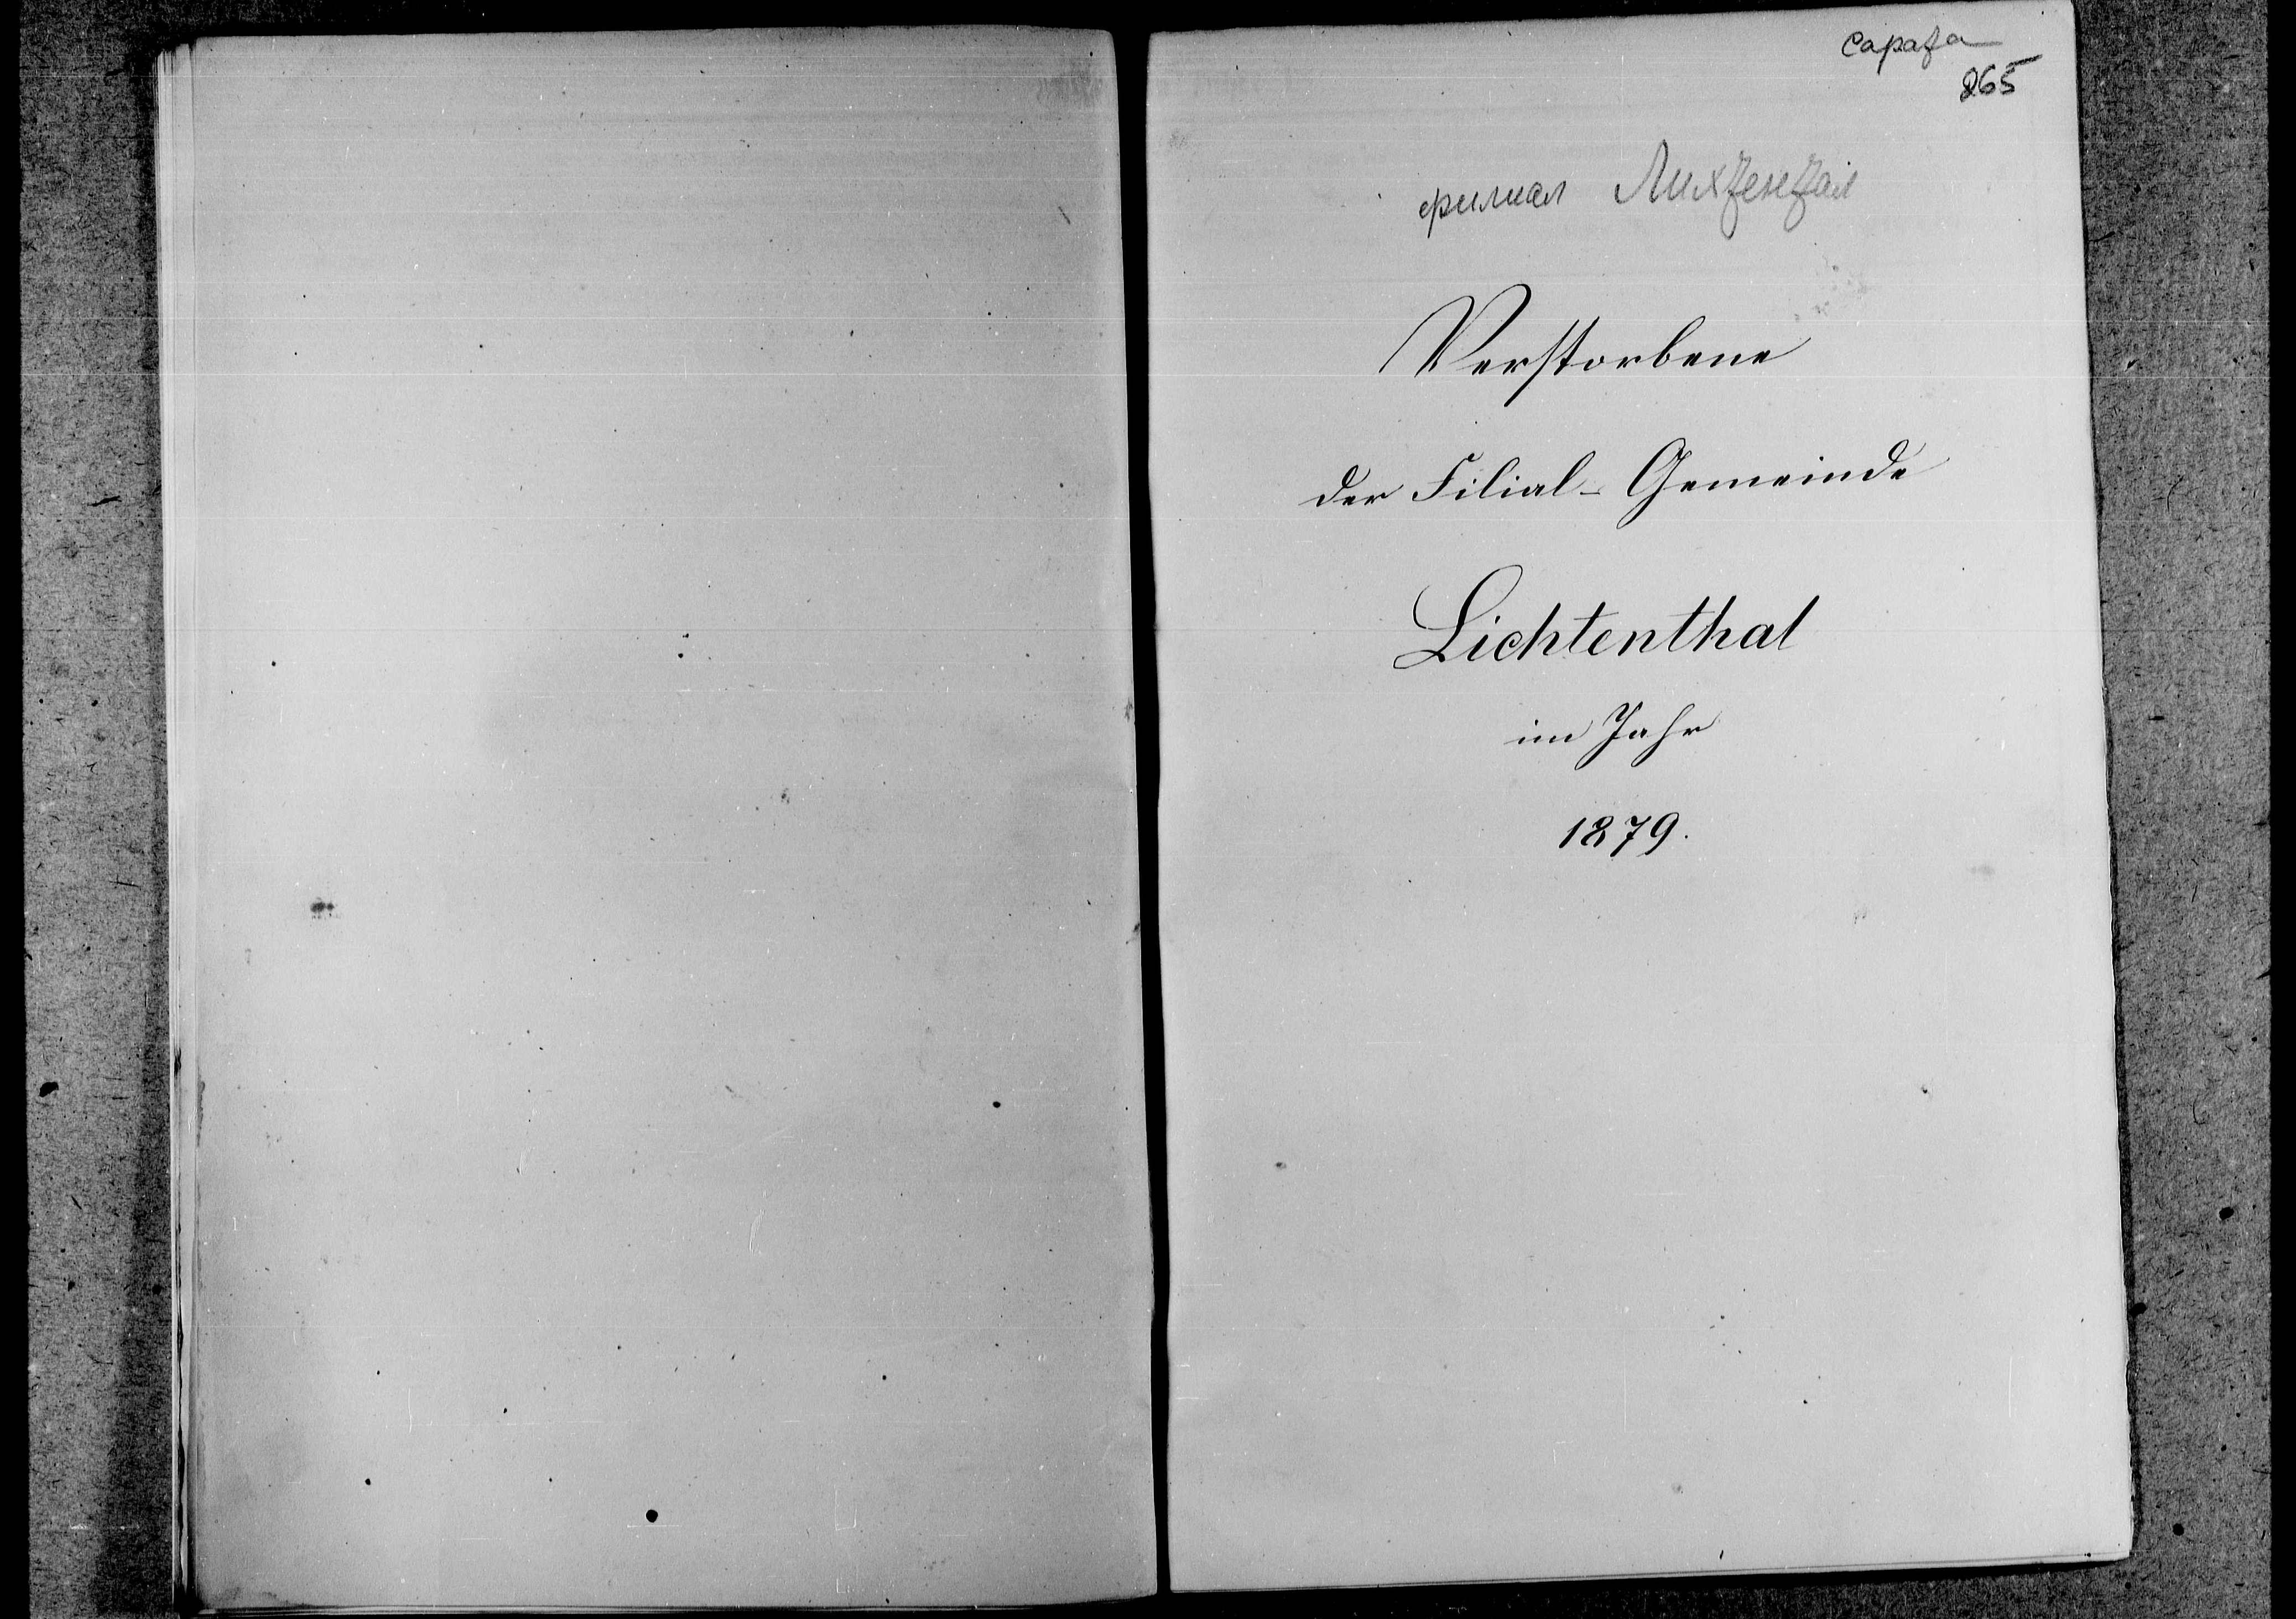 Сарата
865
филиал Лихтентал
Verstorbene
der Filial-Gemeinde
Lichtenthal
im Jahr
1879.